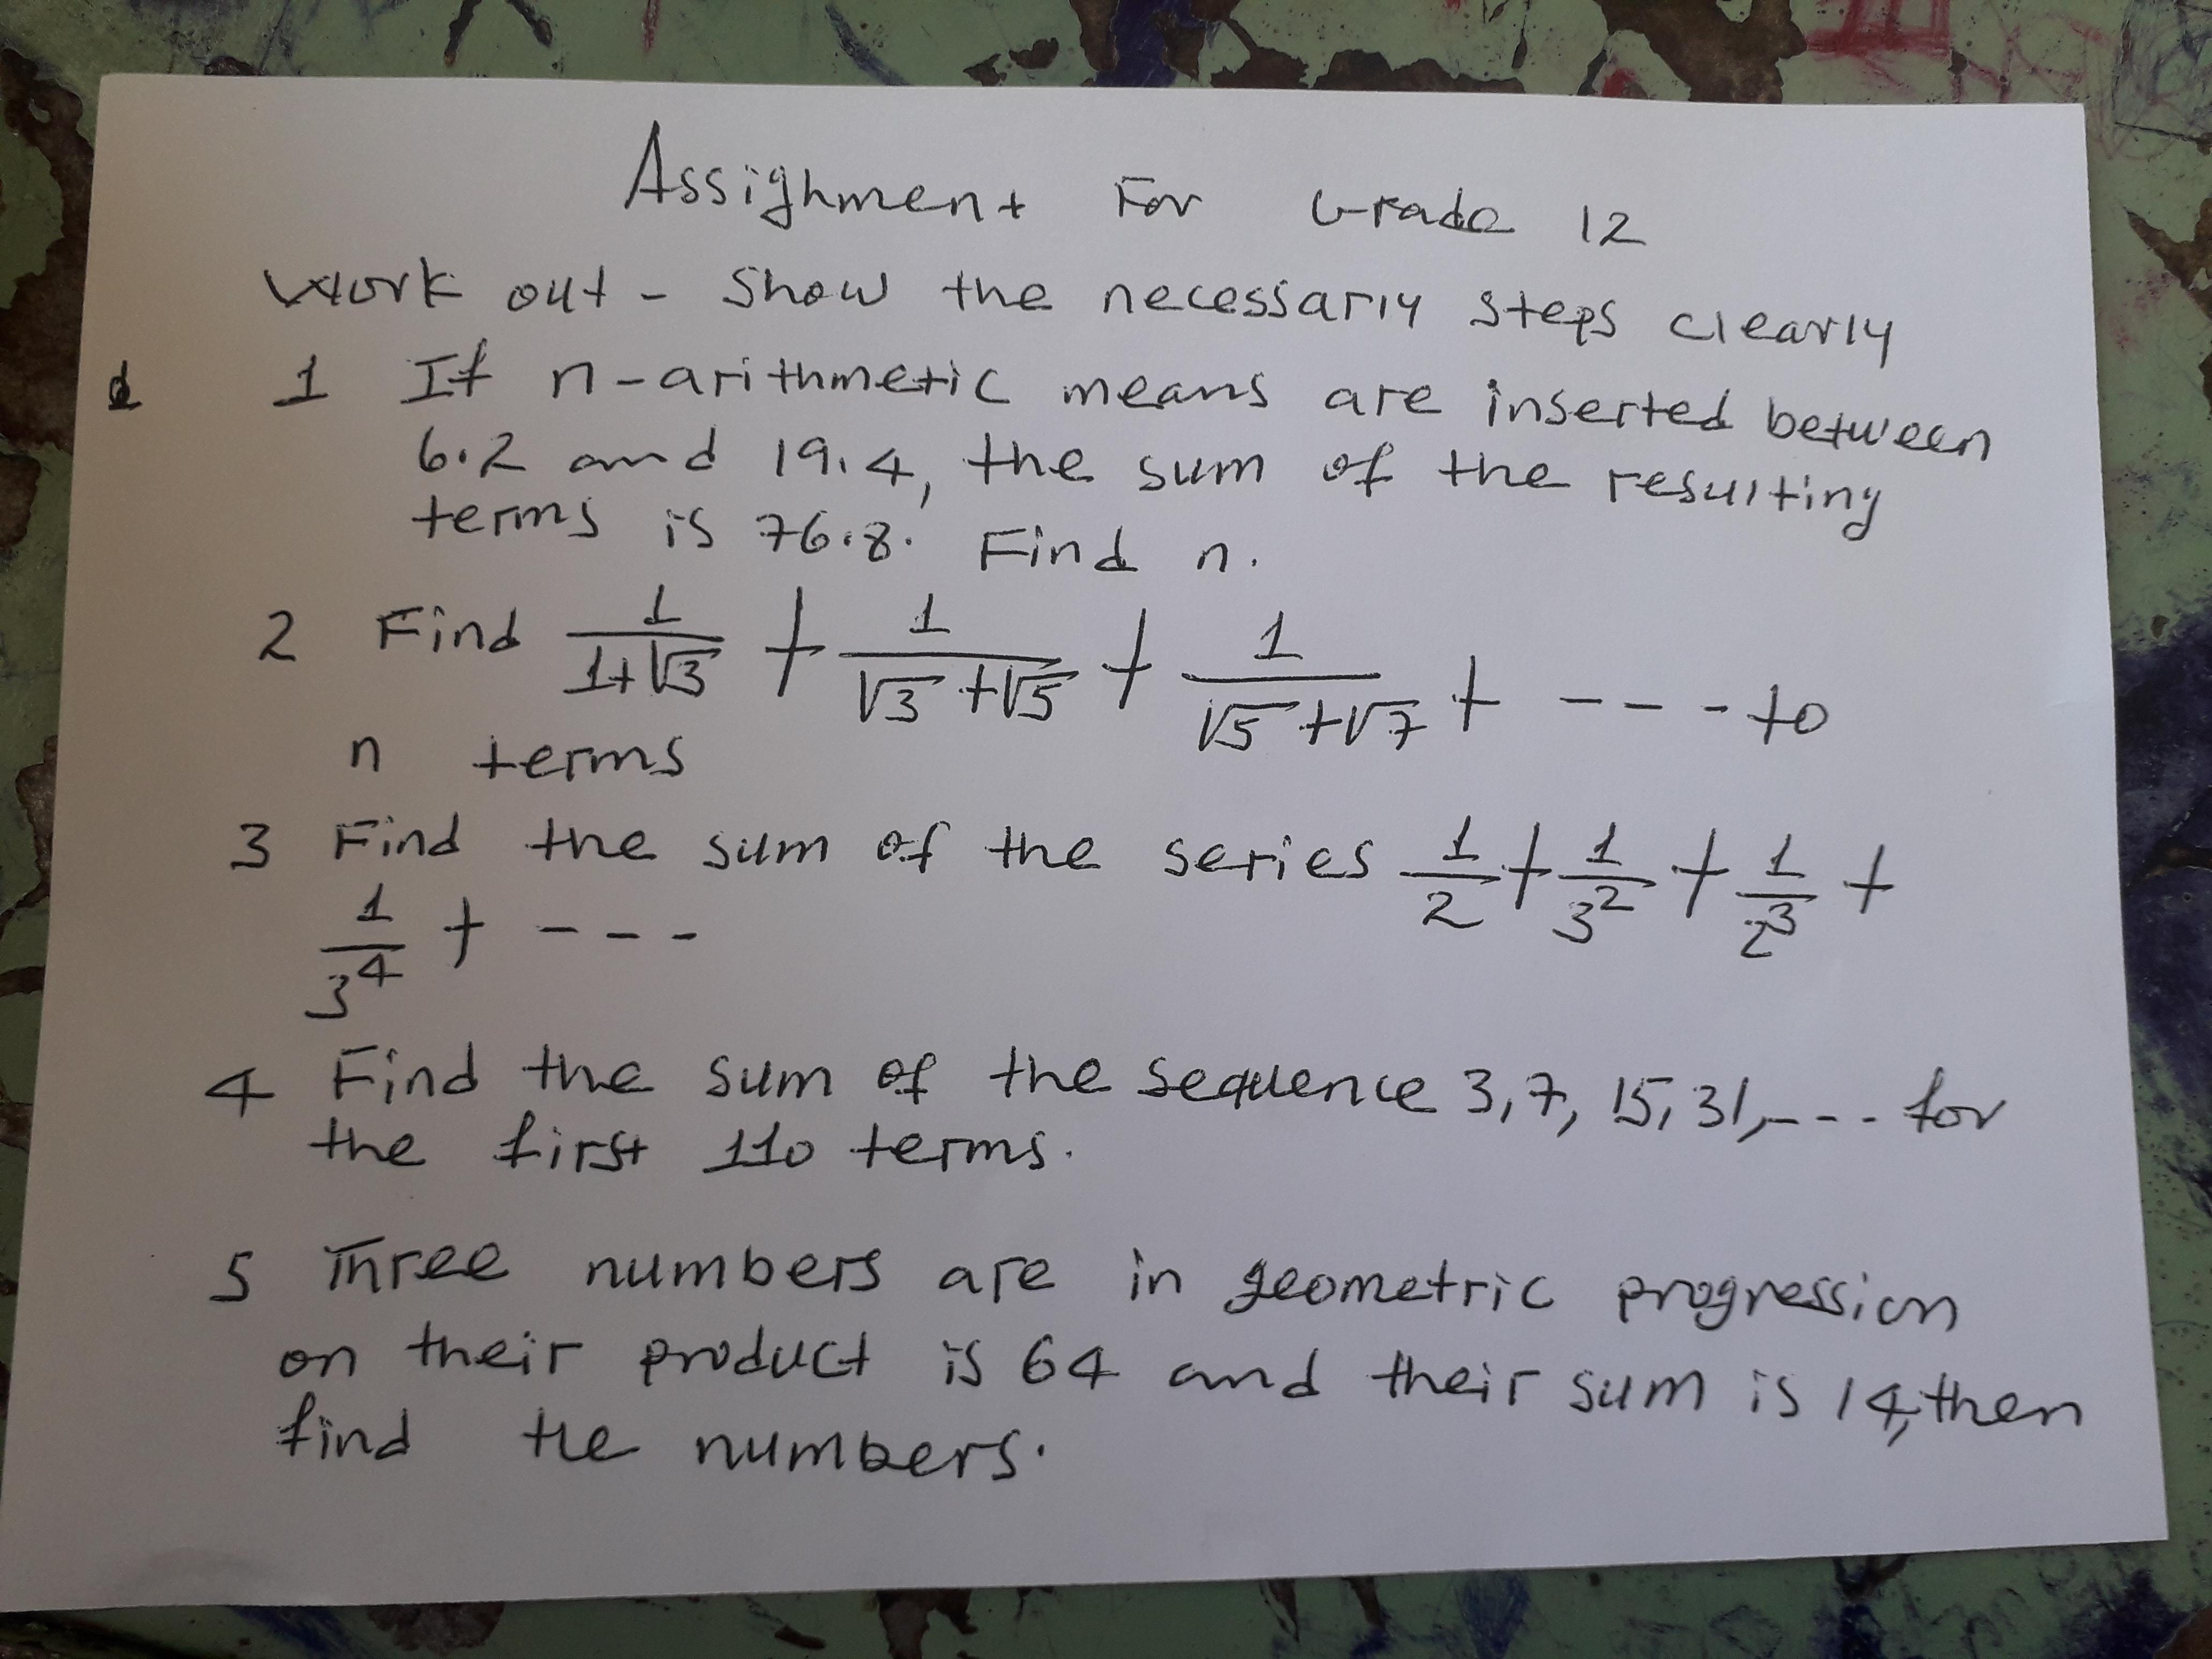 Assighment For Grade 12
Work out - Show the necessarly steps clearly
1 If n-arithmetic means are inserted between
6.2 and 19.4, the sum of the resulting
terms is 76.8. Find n.
2 Find 1/(1+√3) + 1/(√3+√5) + 1/(√5+√7) + ---- to
n terms
3 Find the sum of the series 1/2 + 1/3² + 1/2³ +
1/3⁴ + ---
4 Find the sum of the sequence 3, 7, 15, 31, --- for
the first 110 terms.
5 Three numbers are in geometric progression
on their product is 64 and their sum is 14, then
find the numbers.